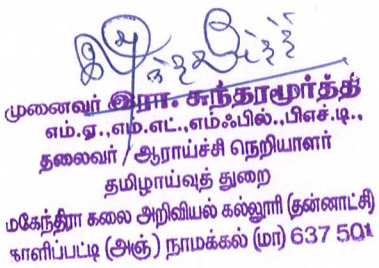 முனைவர் இரா. சுந்தரமூர்த்தி
எம்.ஏ.,எம்.எட்.,எம்ஃபில்.,பிஎச்.டி.,
தலைவர் / ஆராய்ச்சி நெறியாளர்
தமிழாய்வுத் துறை
மகேந்திரா கலை அறிவியல் கல்லூரி (தன்னாட்சி)
காளிப்பட்டி (அஞ்) நாமக்கல் (மா) 637 501